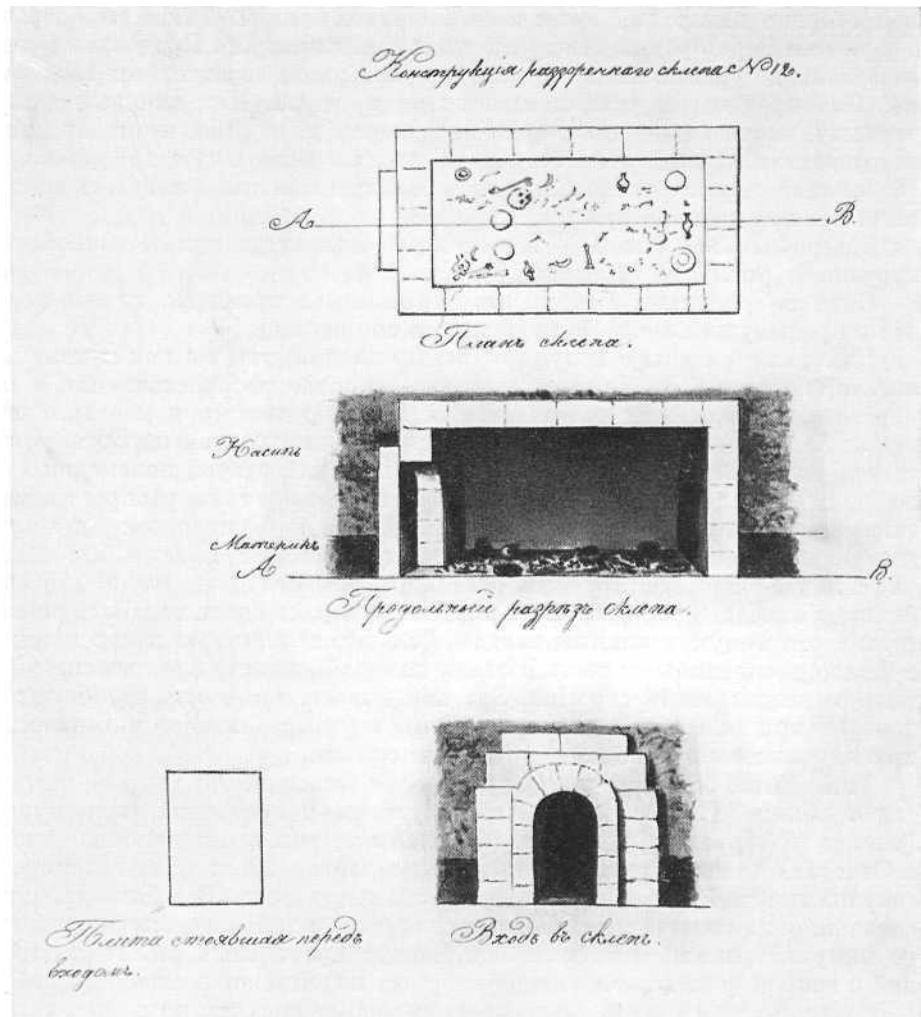 Конструкція раззореннаго склепа с №12.
А
В.
Планъ склепа.
Насыпь
Материкъ
А
В.
Продольный разрѣзъ склепа.
Плита стоявшая передъ
входомъ.
Входъ въ склепъ.